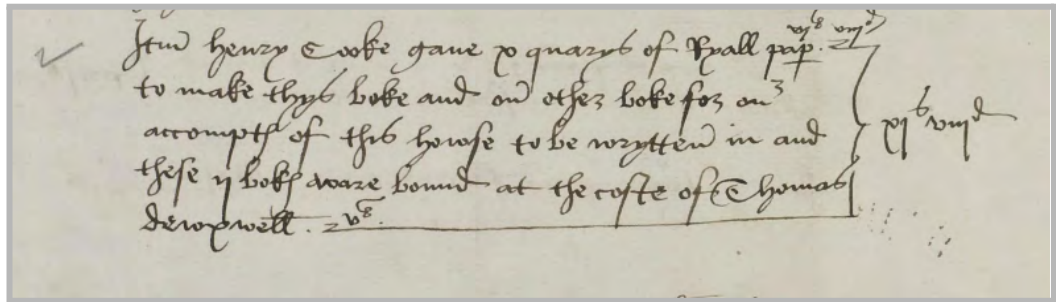 Itm̄ henry Cooke gave x quarys of Ryall pap. vjˢ viijᵈ
to make thys boke and on̄ other boke for our
accomptꝭ of this howse to be wrytten̄ in and xjˢ viijᵈ
these ij bokꝭ ware bound at the coste of Thomas
dewxwell . vˢ.